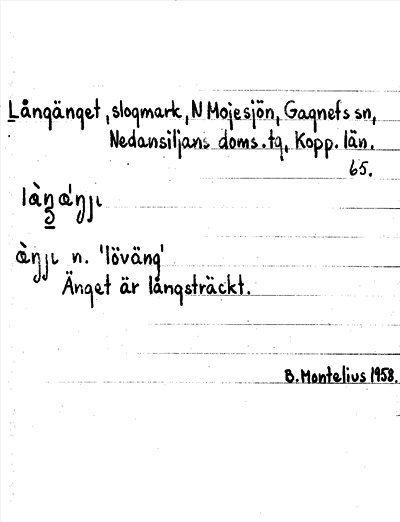 Långänget, slogmark, N Mojesjön, Gagnefs sn,
Nedansiljans doms.tg, Kopp. län.
65.
làŋ̲áŋjɩ
àŋjɩ n. 'löväng'
Änget är långsträckt.
B. Montelius 1958.